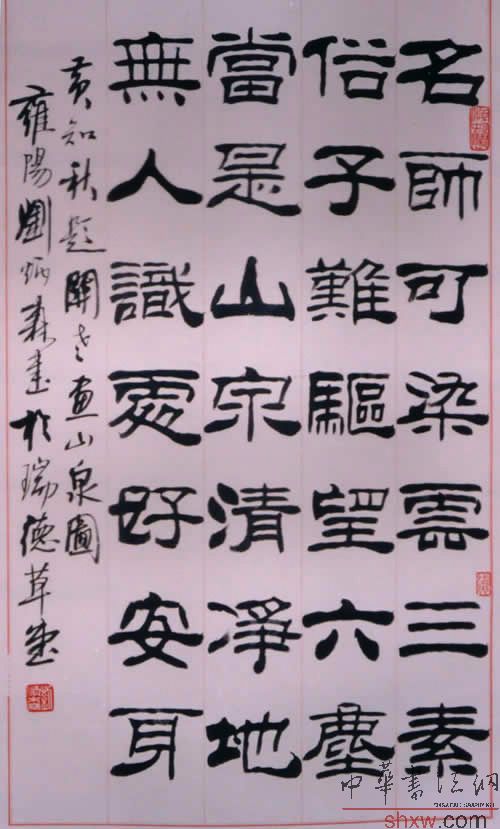 名師可染雲三素
俗子難驅望六塵
當是山泉清淨地
無人識處好安身
黃知秋題關老畫山泉圖
雍陽劉炳森書於瑞德草堂
中華書法網
shxw.com